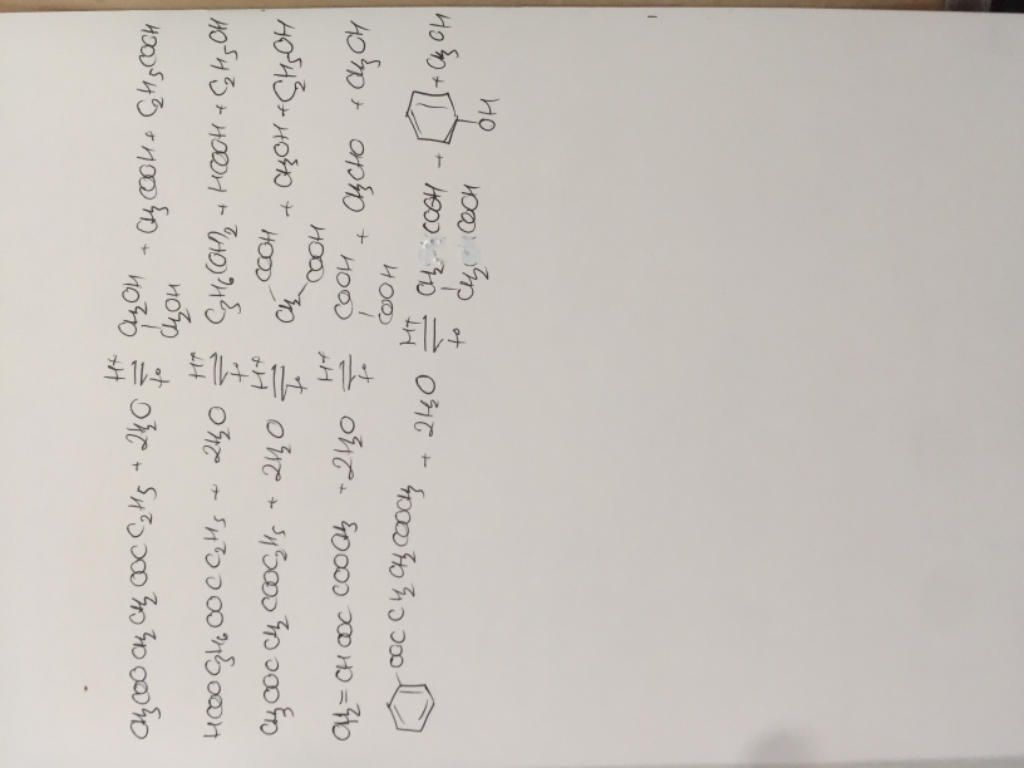 CH₃COOCH₂CH₂OOCC₂H₅ + 2H₂O ⇌ (H⁺, t°) CH₂OH + CH₃COOH + C₂H₅COOH
CH₂OH
HCOOC₃H₆OOCC₂H₅ + 2H₂O ⇌ (H⁺, t°) C₃H₆(OH)₂ + HCOOH + C₂H₅OH
CH₃OOCCH₂COOC₂H₅ + 2H₂O ⇌ (H⁺, t°) CH₂ COOH + CH₃OH + C₂H₅OH
COOH
CH₂=CHOOCCOOCH₃ + 2H₂O ⇌ (H⁺, t°) COOH + CH₃CHO + CH₃OH
COOH
OOCCH₂CH₂COOCH₃ + 2H₂O ⇌ (H⁺, t°) CH₂COOH + + CH₃OH
CH₂COOH OH